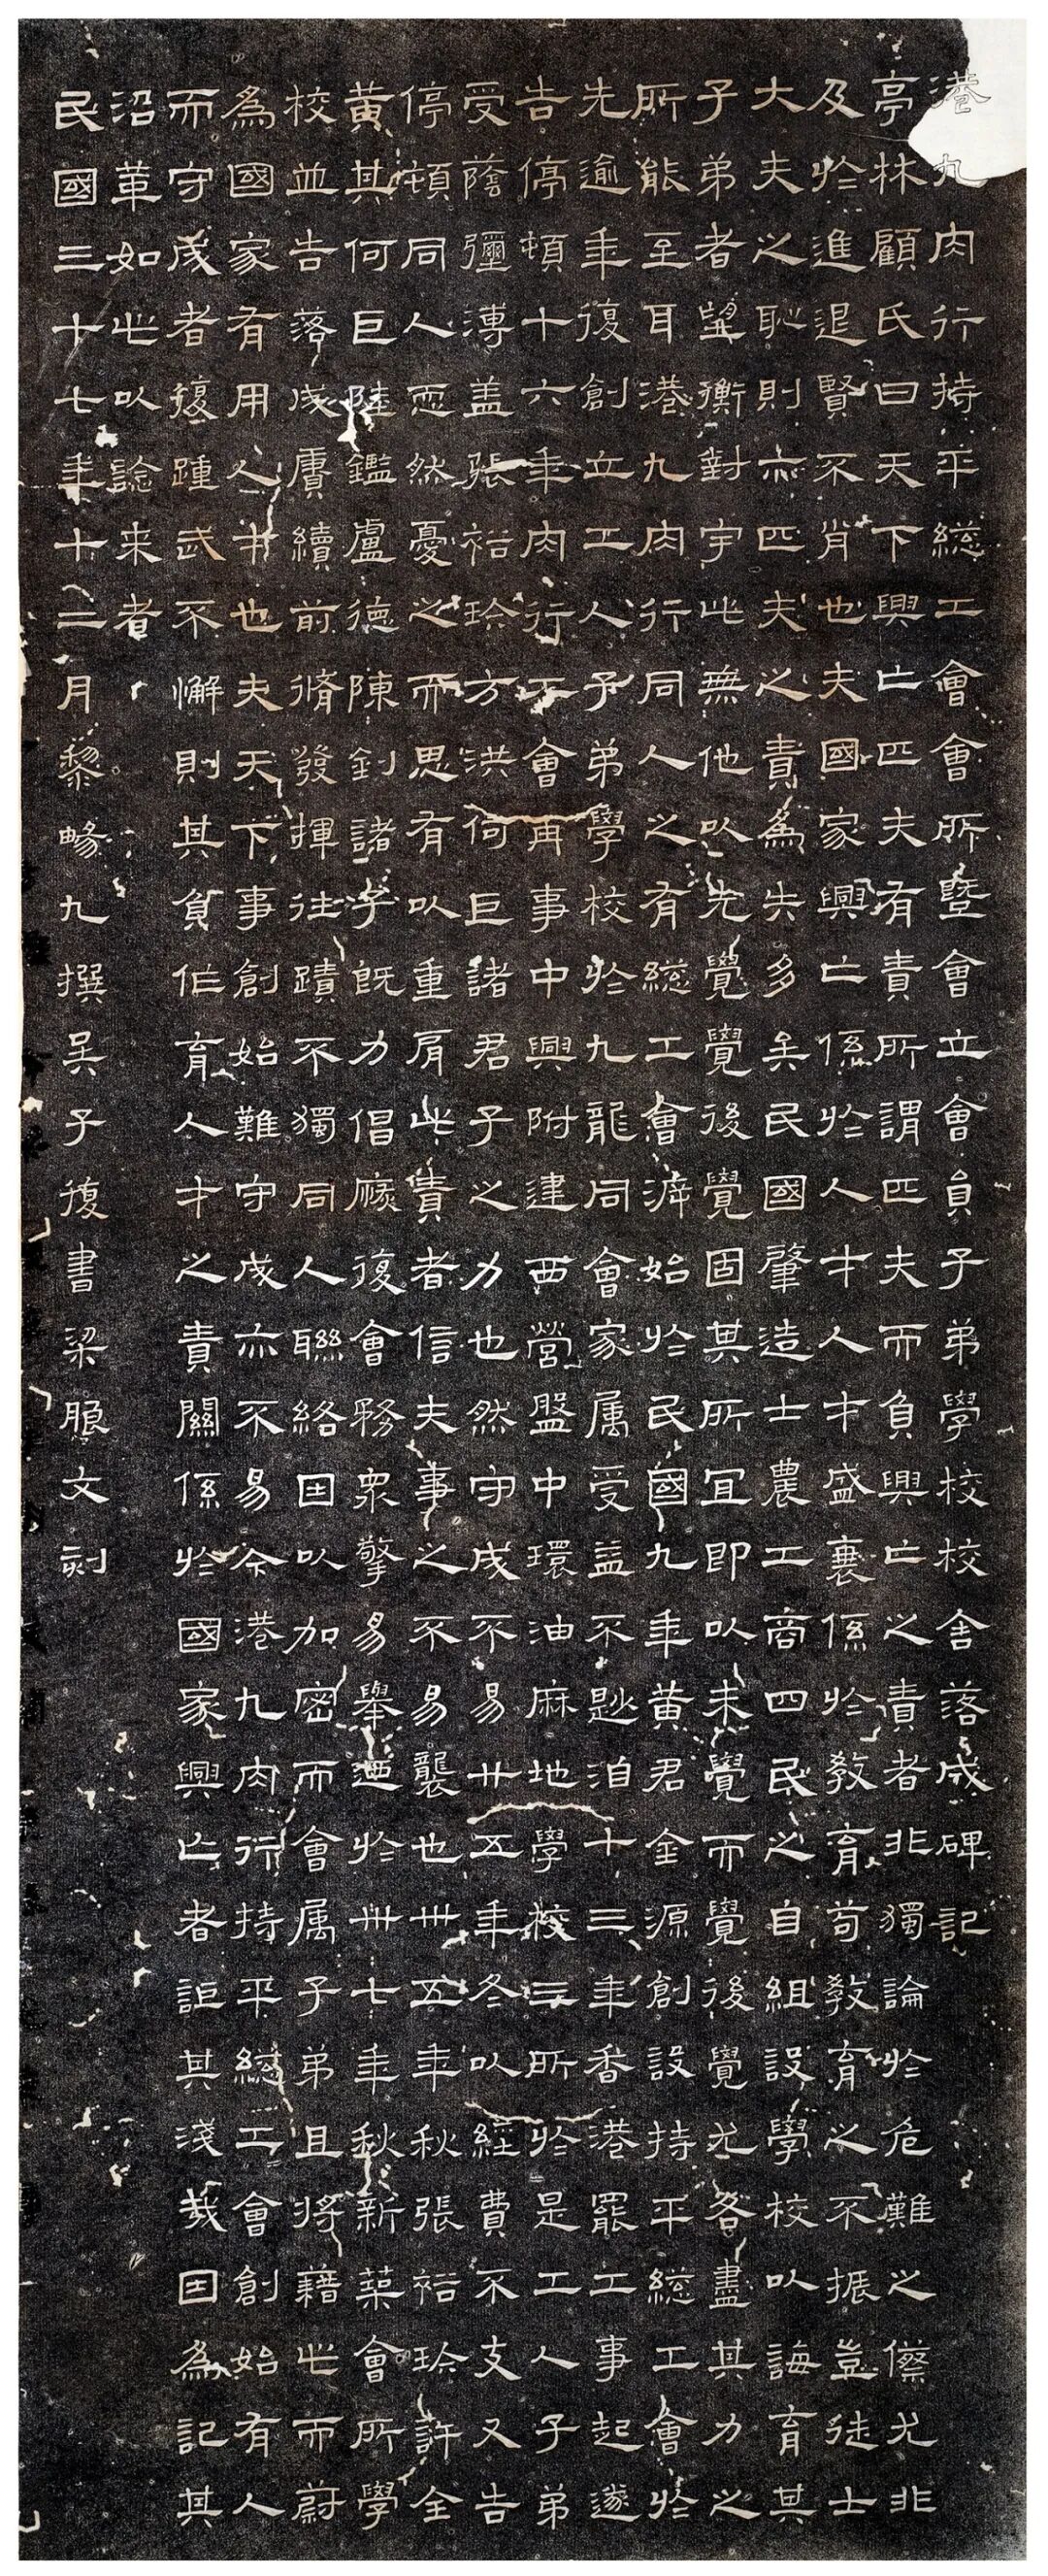 港九肉行持平總工會會所曁會立會員子弟學校校舍落成碑記
亭林顧氏曰天下興亡匹夫有責所謂匹夫而負興亡之責者非獨論於危難之傺尤非
及於進退賢不肖也夫國家興亡係於人才人才盛衰係於教育苟教育之不振豈徒士
大夫之恥則亦匹夫之責為失多矣民國肇造士農工商四民之自組設學校以誨育其
子弟者望衡對宇此無他以先覺覺後覺固其所宜即以未覺而覺後覺尤各盡其力之
所能至耳港九肉行同人之有總工會滓始於民國九年黃君金源創設持平總工會於
先逾年復創立工人子弟學校於九龍同會家属受益不尠洎十三年香港罷工事起遂
告停頓十六年肉行工會再事中興附建西營盤中環油麻地學校三所於是工人子弟
受蔭彌溥盖張裕玲方洪何巨諸君子之力也然守成不易廿五年冬以經費不支又告
停頓同人恧然憂之而思有以重肩此責者信夫事之不易襲也卅五年秋張裕玲許全
黃其何巨陸鑑盧德陳釗諸子既力倡廢復會務衆擎易舉迺於卅七年秋新築會所學
校並告落成賡續前脩發揮往蹟不獨同人聯絡因以加密而會属子弟且將藉此而蔚
為國家有用人才也夫天下事創始難守成亦不易余港九肉行持平總工會創始有人
而守成者復踵武不懈則其負作育人才之責關係於國家興亡者詎其淺哉因為記其
沿革如此以諗来者
民國三十七年十二月黎暢九撰吳子復書梁文刻